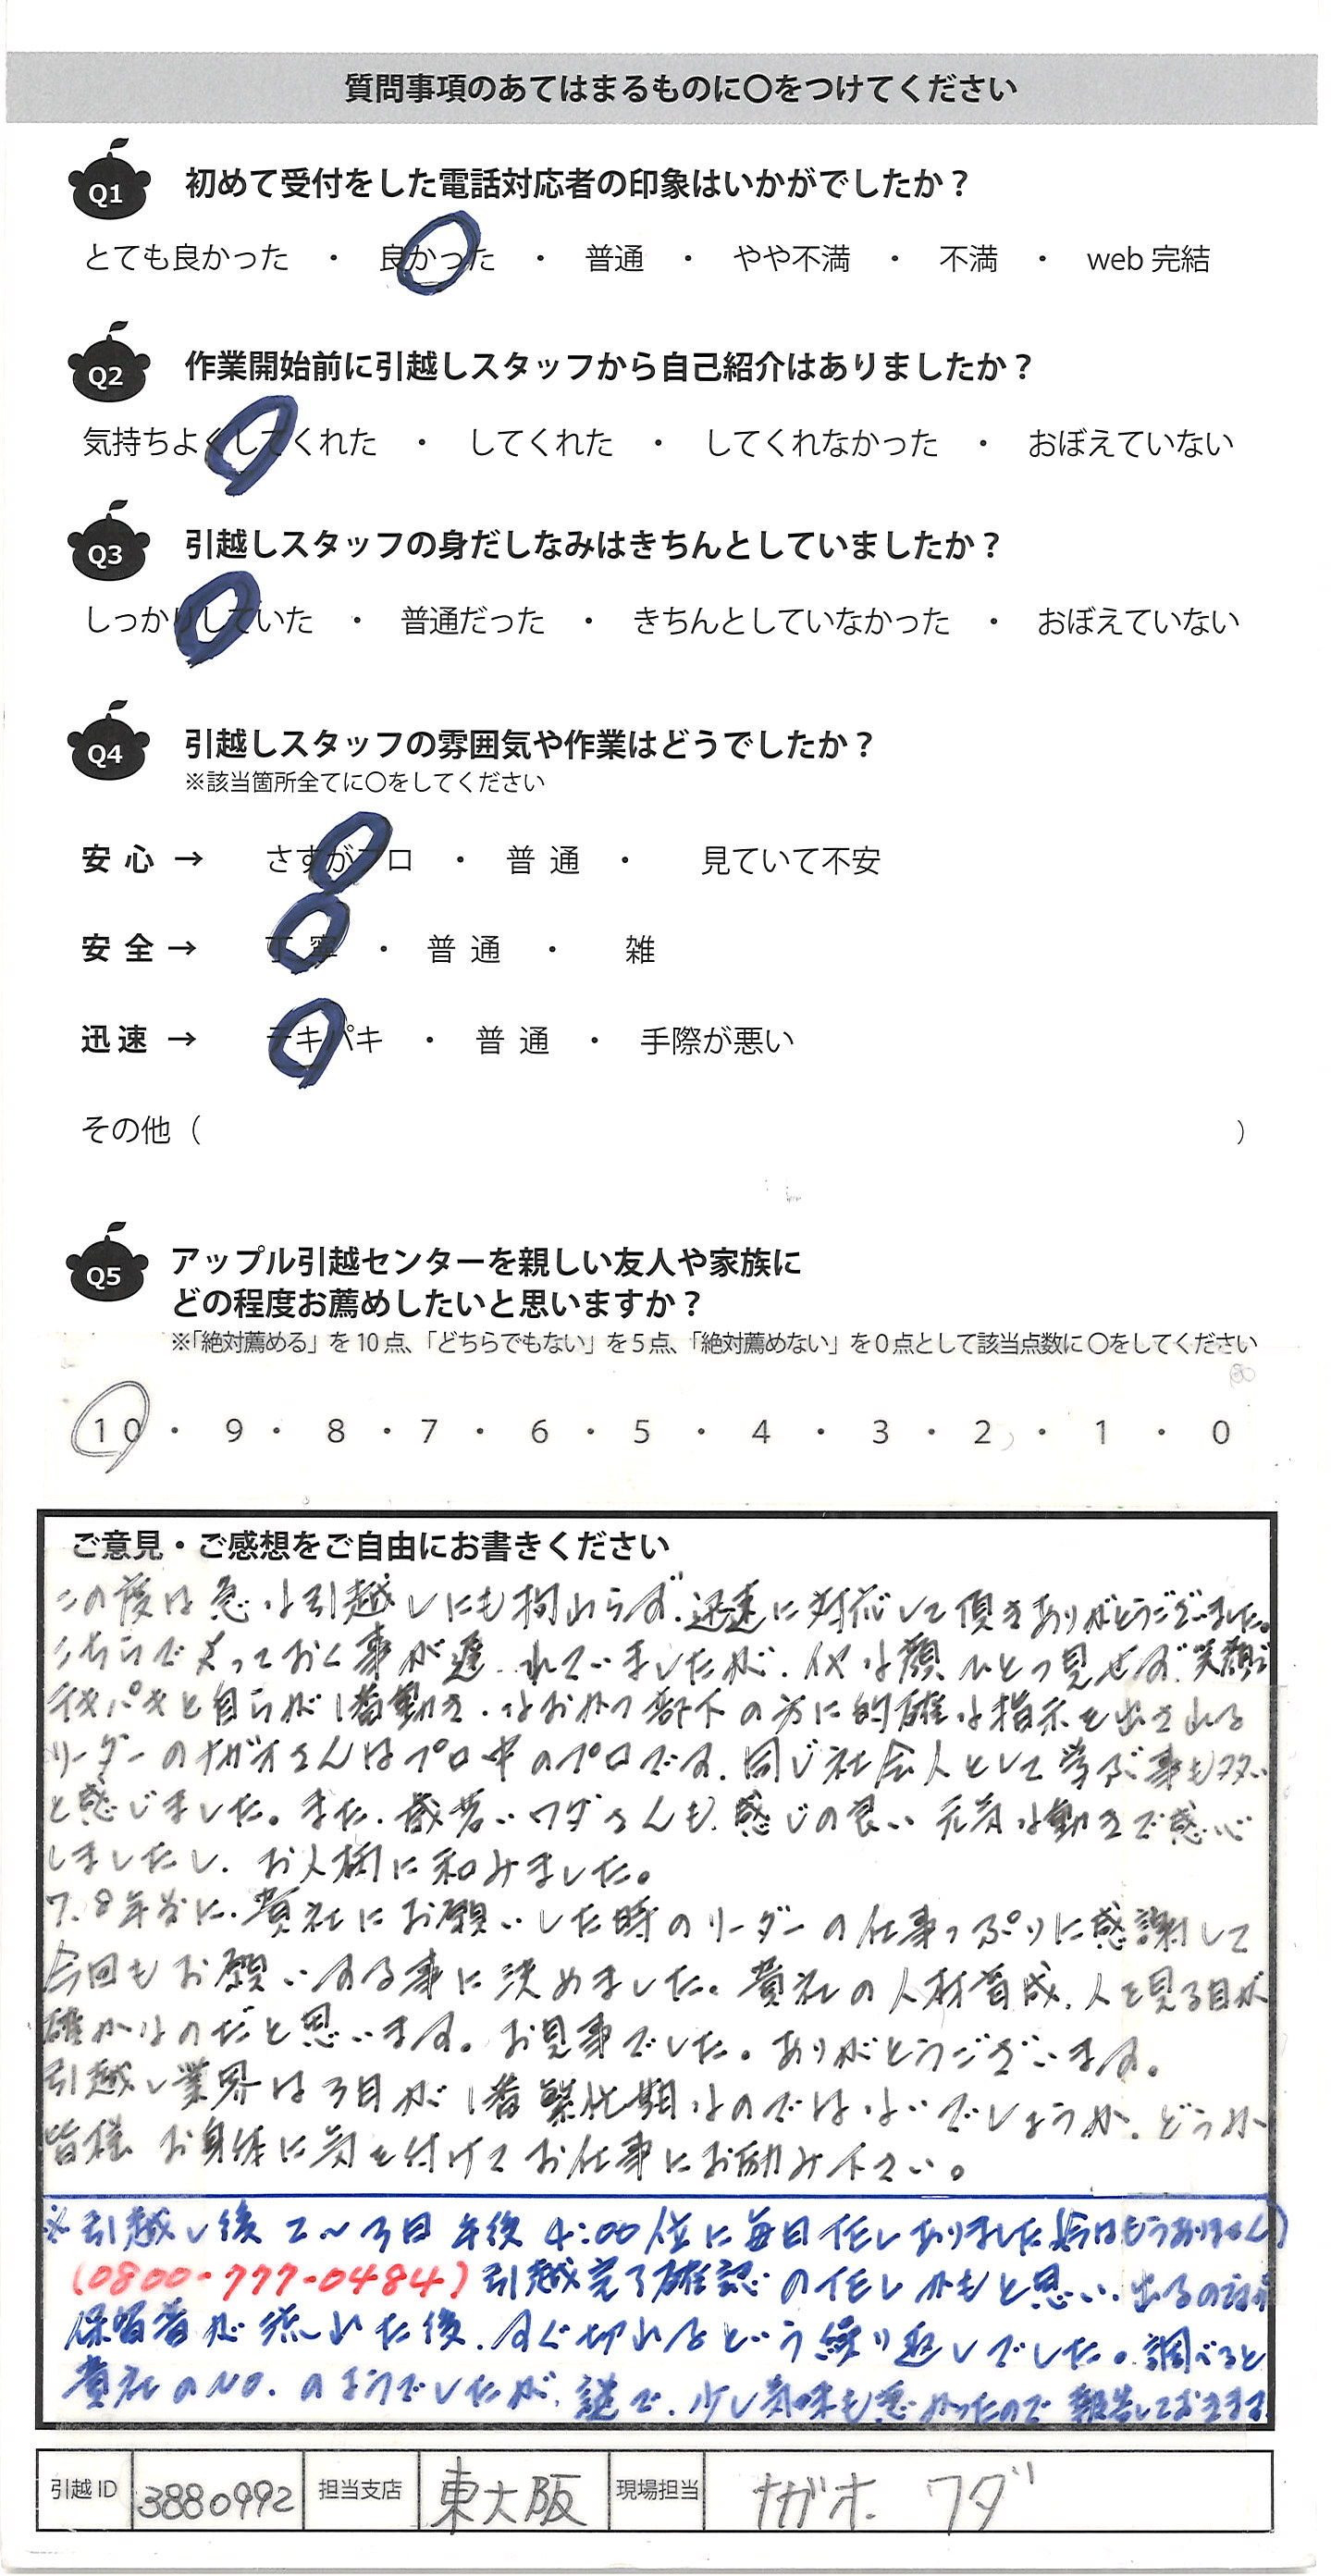 質問事項のあてはまるものに〇をつけてください
Q1 初めて受付をした電話対応者の印象はいかがでしたか？
とても良かった ・ 良かった ・ 普通 ・ やや不満 ・ 不満 ・ web 完結
Q2 作業開始前に引越しスタッフから自己紹介はありましたか？
気持ちよくしてくれた ・ してくれた ・ してくれなかった ・ おぼえていない
Q3 引越しスタッフの身だしなみはきちんとしていましたか？
しっかりしていた ・ 普通だった ・ きちんとしていなかった ・ おぼえていない
Q4 引越しスタッフの雰囲気や作業はどうでしたか？
※該当箇所全てに〇をしてください
安心 → さすがプロ ・ 普通 ・ 見ていて不安
安全 → 丁寧 ・ 普通 ・ 雑
迅速 → テキパキ ・ 普通 ・ 手際が悪い
その他（ ）
Q5 アップル引越センターを親しい友人や家族に
どの程度お薦めしたいと思いますか？
※「絶対薦める」を 10 点、「どちらでもない」を 5 点、「絶対薦めない」を 0 点として該当点数に 〇をしてください
10 ・ 9 ・ 8 ・ 7 ・ 6 ・ 5 ・ 4 ・ 3 ・ 2 ・ 1 ・ 0
ご意見・ご感想をご自由にお書きください
この度は急な引越しにも拘わらず、迅速に対応して頂きありがとうございました。
こちらでやっておく事が遅れていましたが、イヤな顔ひとつ見せず、笑顔で
テキパキと自らが1番動き、なおかつ部下の方に的確な指示を出される
リーダーのナガオさんはプロ中のプロです。同じ社会人として学ぶ事も多い
と感じました。また、歳若いワダさんも、感じの良い元気な動きで感心
しましたし、お人柄に和みました。
7、8年前に、貴社にお願いした時のリーダーの仕事っぷりに感謝して
今回もお願いする事に決めました。貴社の人材育成、人を見る目が
確かなのだと思います。お見事でした。ありがとうございます。
引越し業界は3月が1番繁忙期なのではないでしょうか。どうか
皆様 お身体に気を付けてお仕事にお励み下さい。
※引越し後 2〜3日 午後 4:00位に毎日TELありました(今はもうありません)
(0800-777-0484) 引越完了確認のTELかもと思い、出るのですが
保留音が流れた後、すぐ切れるという繰り返しでした。調べると
貴社のNO.のようでしたが、謎で、少し気味も悪かったので報告しておきます
引越ID 3880992 担当支店 東大阪 現場担当 ナガオ ワダ